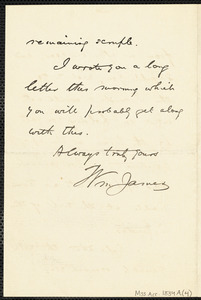 remaining scruple.
I wrote you a long
letter this morning which
you will probably get along
with this.
Always truly yours
Wm James
Mss Acc. 1839A(4)